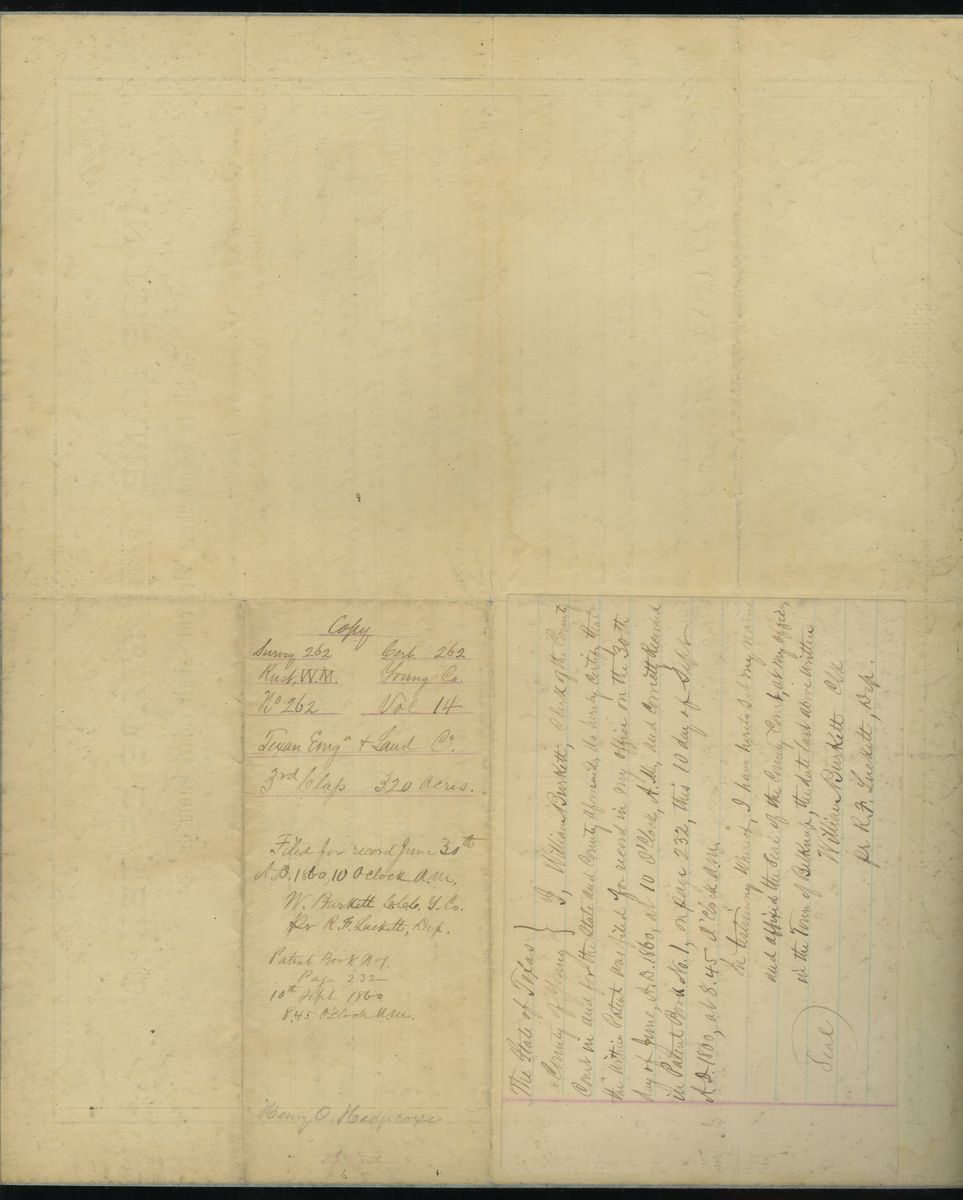 Copy
Survey 262 Cert. 262
Rust, W.M. Young Co.
No 262 Vol 14
Texan Emgn & Land Co.
3rd Class 320 Acres.
Filed for record June 30th
A.D. 1860, 10 O'Clock A.M.
W. Burkett C.C.C. Y. Co.
Per R.F. Luckett, Dep.
Patent Book No 1.
Page 232
10th Sept 1860
8.45 O'Clock A.M.
Henry O. Hedgcoxe.
The State of Texas }
County of Young } I, William Burkett, Clerk of the County
Court in and for the State and County aforesaid, do hereby Certify that
the within Patent was filed for record in my office on the 30th
day of June, A.D. 1860, at 10 O'Clock, A.M., and Correctly Recorded
in Patent Book No. 1, on page 232, this 10 day of Sept
A.D. 1860, at 8.45 O'Clock A.M.
In testimony Whereof, I have hereto set my name
and affixed the Seal of the County Court, at my office,
in the Town of Belknap, the date last above written
William Burkett Clk
pr R.F. Luckett, Dep.
(Seal)